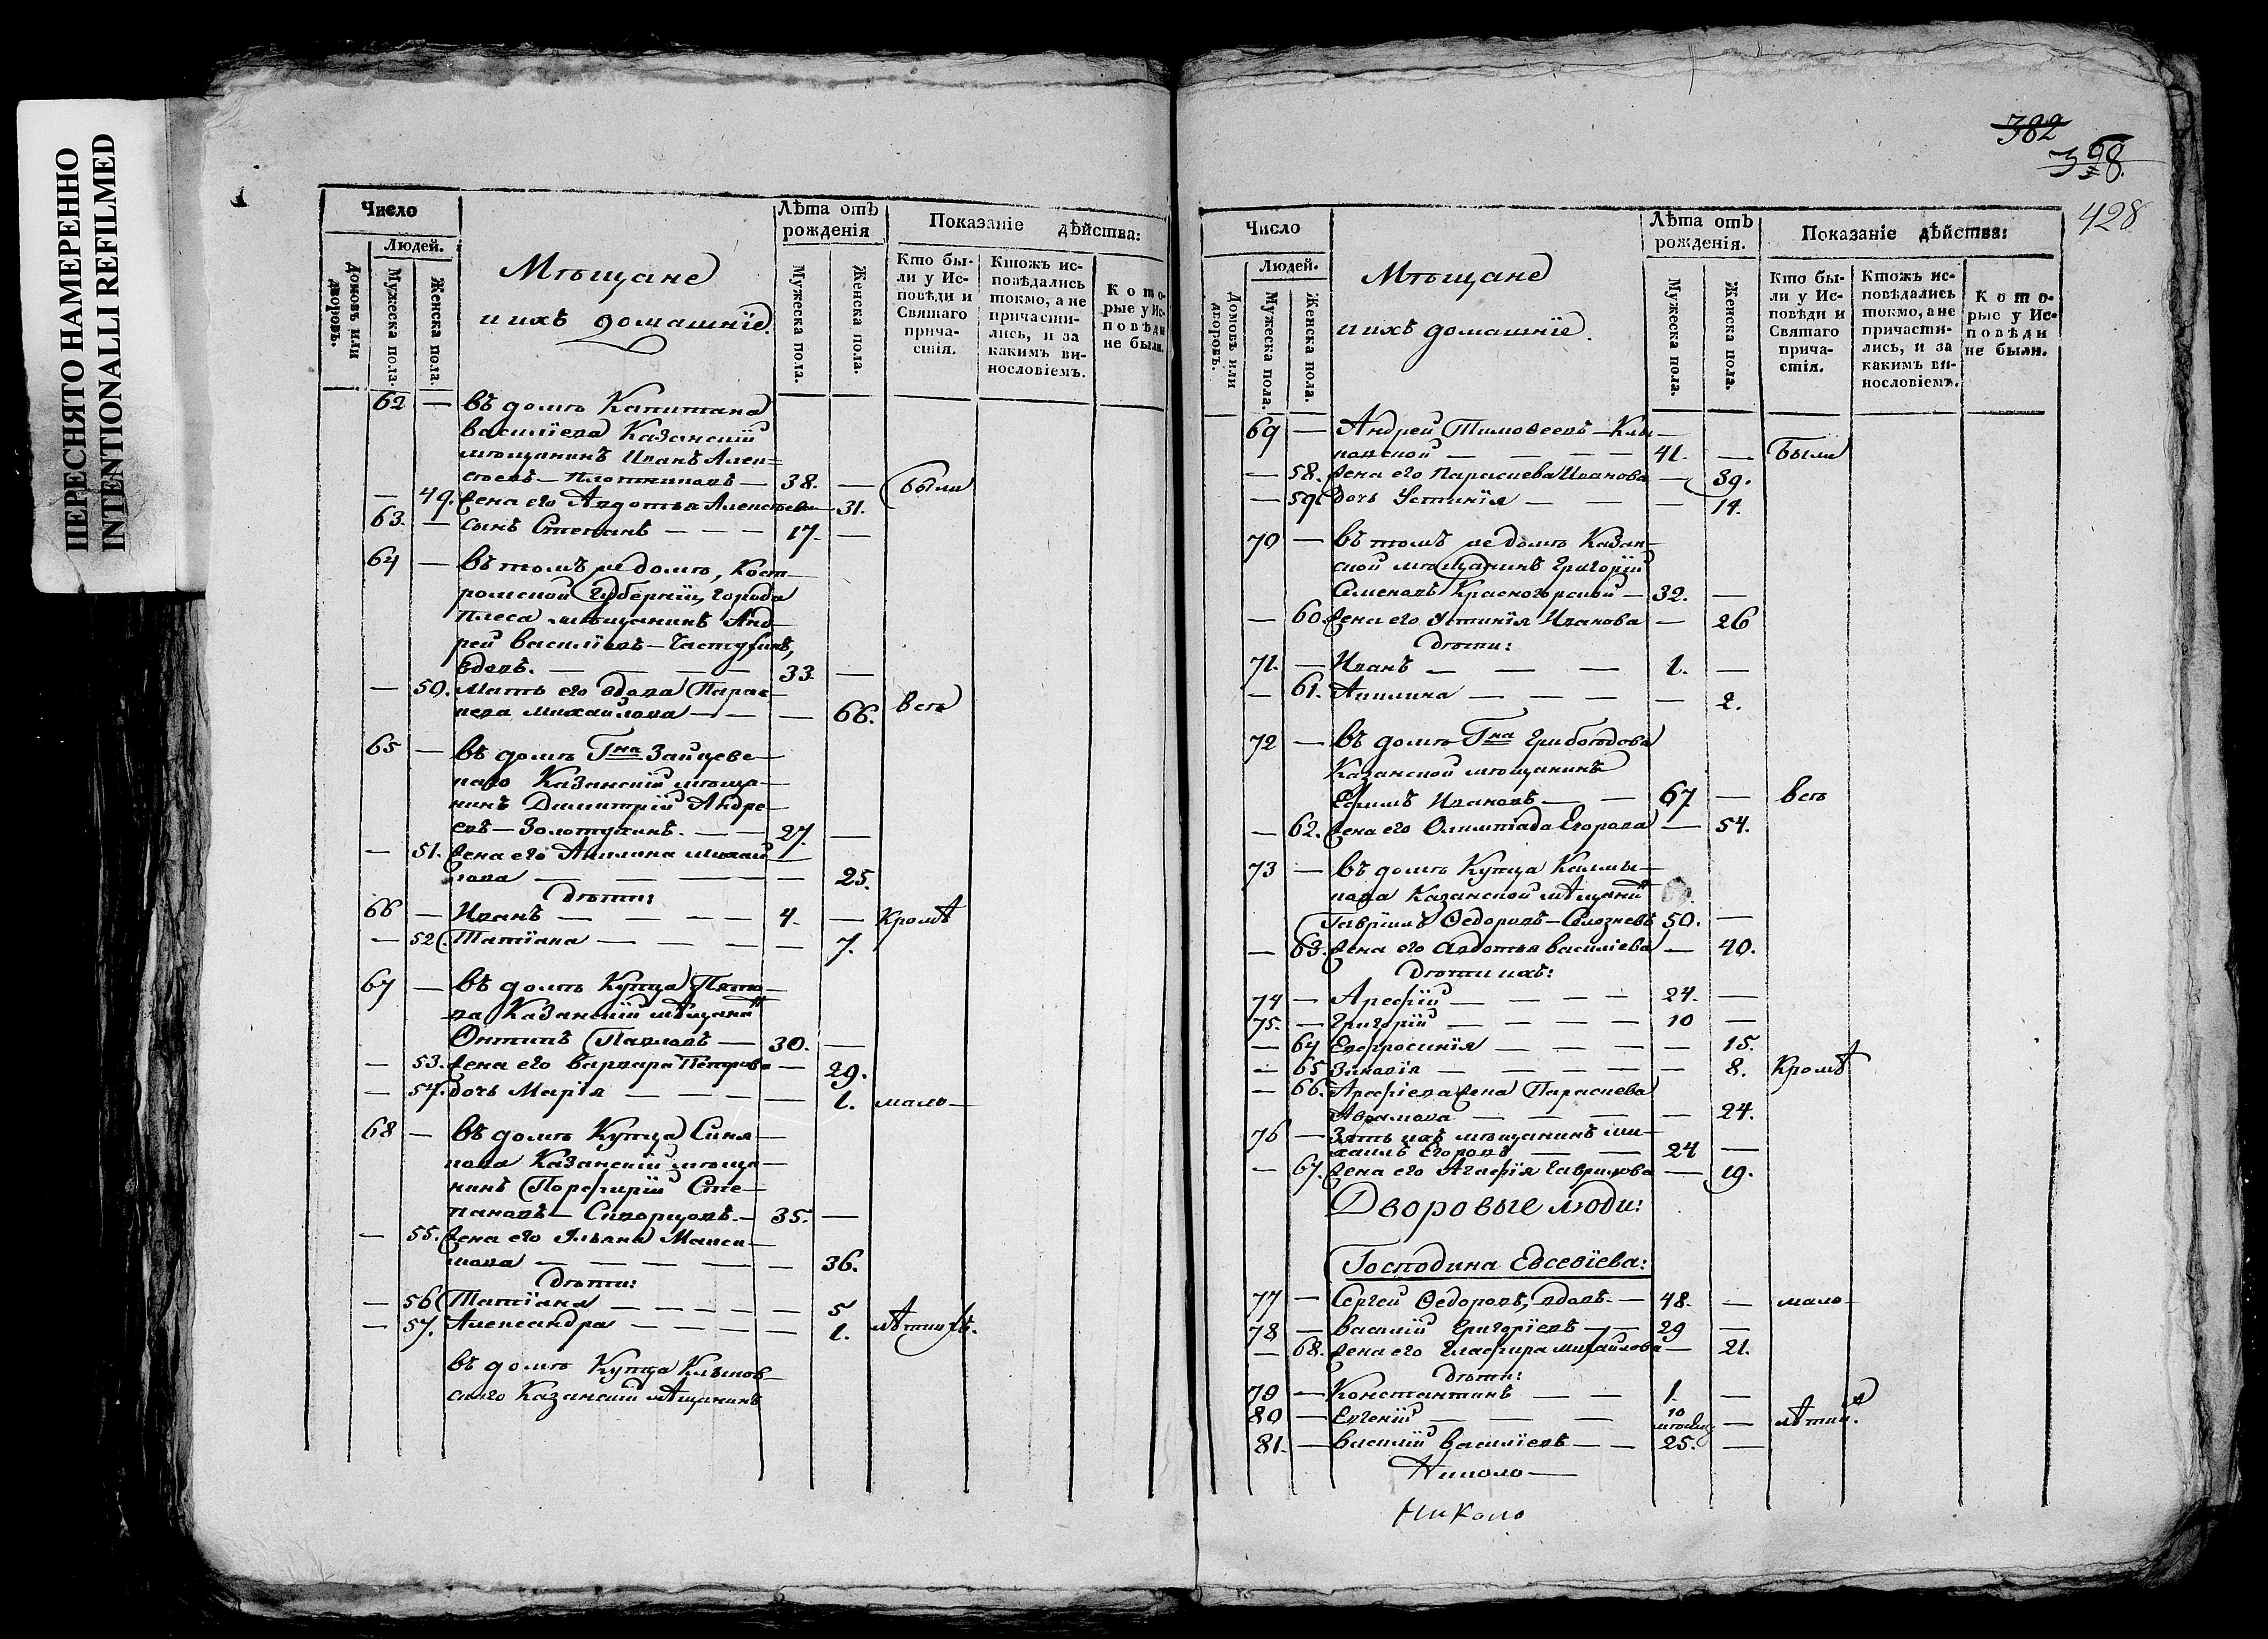 ПЕРЕСНЯТО НАМЕРЕННО
INTENTIONALLI REFILMED
Число
Людей.
Домовъ или дворовъ.
Мужеска пола.
Женска пола.
Мѣщане
и ихъ домашніе.
Лѣта отъ рожденія
Мужеска пола.
Женска пола.
Показаніе дѣйства:
Кто были у Исповѣди и Святаго причастія.
Ктожъ исповѣдались токмо, а не причастились, и за какимъ винословіемъ.
Которые у Исповѣди не были.
62 — въ домѣ Капитана
василіева Казанскій
мѣщанинъ Иванъ Алек=
сѣевъ — Плотниковъ — 38. — были
— 49. жена его Авдотья Алексѣева — 31.
63. — сынъ Степанъ — — — 17. —
64 — въ томъ же домѣ, Кост—
ромской Губерніи, города
Плеса мѣщанинъ Анд—
рей василіевъ —
вдовъ. — — — — 33. —
— 50. Мать его вдова Парас—
кева михайлова — — — 66. всѣ
65 — въ домѣ Гна Зайцевс—
каго Казанскій мѣща—
нинъ Димитрій Андре—
евъ — Золотухинъ. — — 27. —
— 51. жена его Акилина михай—
лова — — — — 25.
дѣти:
66 — Иванъ — — — — 4. — Кромѣ
— 52. Татіана — — — — 7.
67 — въ домѣ Купца Пято—
ва Казанскій мѣщанинъ
Онтипъ Павловъ — 30. —
— 53. жена его варвара Петрова — 29.
— 54. дочь Марія — — — — 1. мало—
68 — въ домѣ Купца Синя—
кова Казанскій мѣща—
нинъ Порфирій Сте—
пановъ — Скворцовъ. — 35. —
— 55. жена его Ульяна Макси—
мова — — — — — 36.
дѣти:
— 56. Татіана — — — — 5
— 57. Александра — — — — 1. лѣтнихъ.
въ домѣ Купца Клыков—
скаго Казанскій мѣщанинъ
382
398.
428
Число
Людей.
Домовъ или дворовъ.
Мужеска пола.
Женска пола.
Мѣщане
и ихъ домашніе.
Лѣта отъ рожденія.
Мужеска пола.
Женска пола.
Показаніе дѣйства:
Кто были у Исповѣди и Святаго причастія.
Ктожъ исповѣдались токмо, а не причастились, и за какимъ винословіемъ.
Которые у Исповѣди не были.
69 — Андрей Тимоѳеевъ —
— — — — 41. — были
— 58. жена его Параскева Иванова — 39.
— 59. дочь Устинія — — — 14.
70 — въ томъ же домѣ Казан—
ской мѣщанинъ Григорій
Семеновъ Красногорской — 32. —
— 60. жена его Устинія Иванова — 26
дѣти:
71. — Иванъ — — — 1. —
— 61. Акилина — — — — 2.
72 — въ домѣ Гна Грибоѣдова
Казанской мѣщанинъ
Ефимъ Ивановъ — — 67 — всѣ
— 62. жена его Олимпіада Егорова — 54.
73 — въ домѣ Купца Калмы—
кова Казанской мѣщанинъ
Гавріилъ Ѳедоровъ — Селезневъ 50. —
— 63. жена его Авдотья василіева — 40.
дѣти ихъ:
74 — Арефій — — — — 24. —
75. — Григорій — — — — 10 —
— 64 Евфросинія — — — — 15.
— 65 Зиновія — — — — — 8. Кромѣ
— 66. Арефіева жена Параскева
Аврамова — — — — 24.
76 — Зять ихъ мѣщанинъ ми—
хаилъ Егоровъ — — 24 —
— 67. жена его Агафія Гаврилова — 19.
Дворовые люди:
Господина Евсевіева:
77 — Сергей Ѳедоровъ, вдовъ. — 48. — мало—
78 — василій Григорьевъ — — 29 —
— 68. жена его Глафира михайлова — 21.
дѣти:
79 — Константинъ — — 1. —
80 — Евгеній — — — 10 мѣсяц — лѣтних.
81. — василій василіевъ — — 25. —
Николо—
Николо